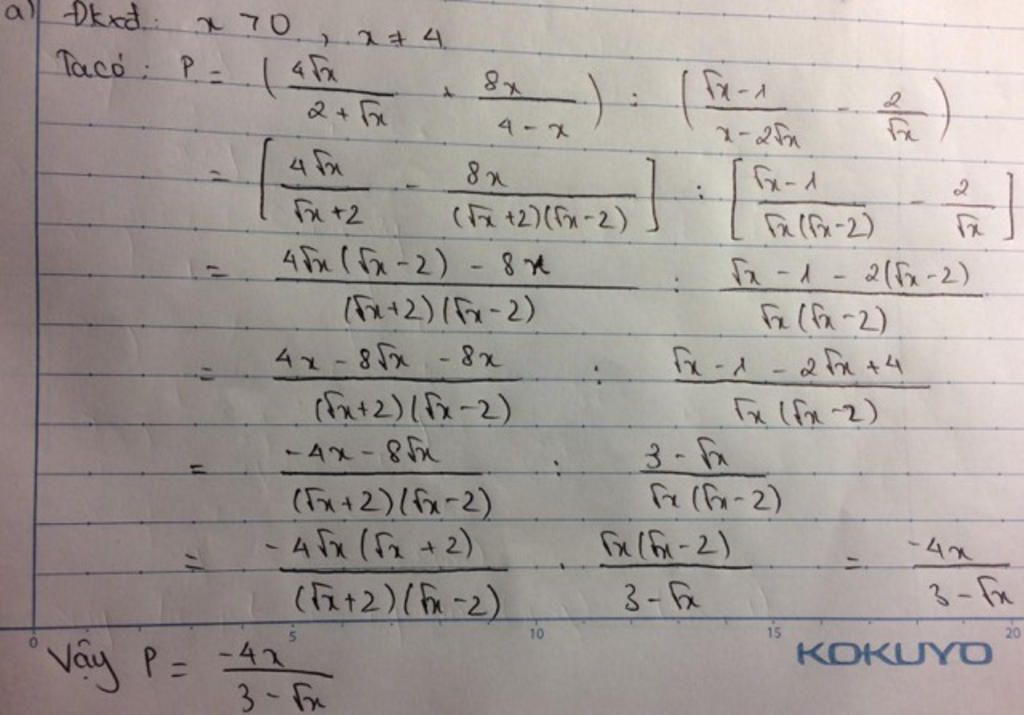 a) Đkxđ: x > 0, x ≠ 4
Ta có: P = (4√x / (2 + √x) + 8x / (4 - x)) : ((√x - 1) / (x - 2√x) - 2 / √x)
= [4√x / (√x + 2) - 8x / ((√x + 2)(√x - 2))] : [(√x - 1) / (√x(√x - 2)) - 2 / √x]
= (4√x(√x - 2) - 8x) / ((√x + 2)(√x - 2)) : (√x - 1 - 2(√x - 2)) / (√x(√x - 2))
= (4x - 8√x - 8x) / ((√x + 2)(√x - 2)) : (√x - 1 - 2√x + 4) / (√x(√x - 2))
= (-4x - 8√x) / ((√x + 2)(√x - 2)) : (3 - √x) / (√x(√x - 2))
= (-4√x(√x + 2)) / ((√x + 2)(√x - 2)) . (√x(√x - 2)) / (3 - √x) = -4x / (3 - √x)
0 5 10 15 20
KOKUYO
Vậy P = -4x / (3 - √x)